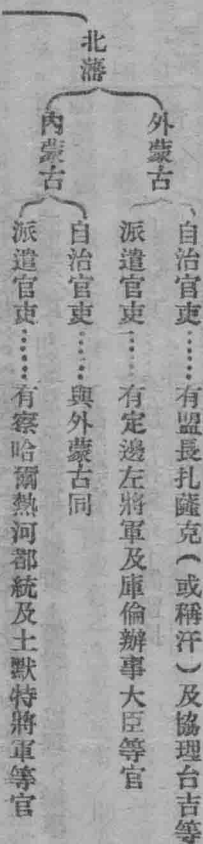 北藩
外蒙古
自治官吏……有盟長扎薩克(或稱汗)及協理台吉等
派遣官吏……有定邊左將軍及庫倫辦事大臣等官
內蒙古
自治官吏……與外蒙古同
派遣官吏……有察哈爾熱河都統及土默特將軍等官